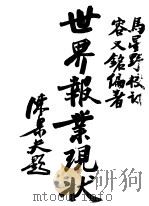 馬星野校訂
容又銘編著
世界報業現状
陳果夫題
www.duxiu.com